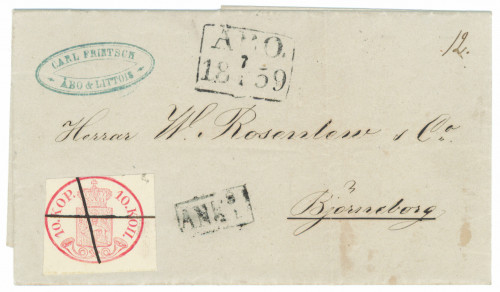 CARL FRIETSCH
ABO & LITTOIS
ÅBO.
7
18 1 59
12.
Herrar W. Rosenlew & Co.
Björneborg
ANK
10.KOP. 10.КОП.